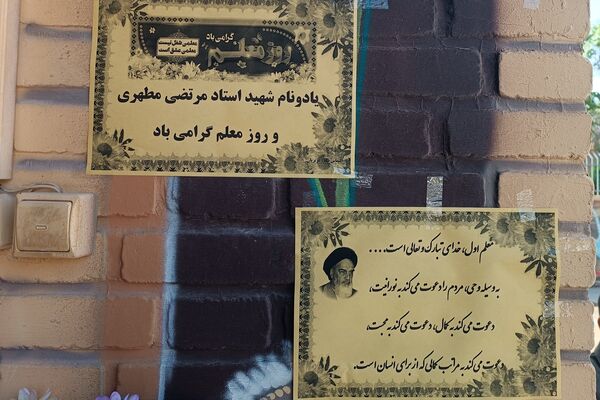 گرامی باد
روز معلم
معلمی شغل نیست
معلمی عشق است
یادونام شهید استاد مرتضی مطهری
و روز معلم گرامی باد
معلم اول، خدای تبارک و تعالی است....
به وسیله وحی، مردم را دعوت می‌کند به نورانیت،
دعوت می‌کند به کمال، دعوت می‌کند به محبت،
دعوت می‌کند به مراتب کمالی که از برای انسان است.